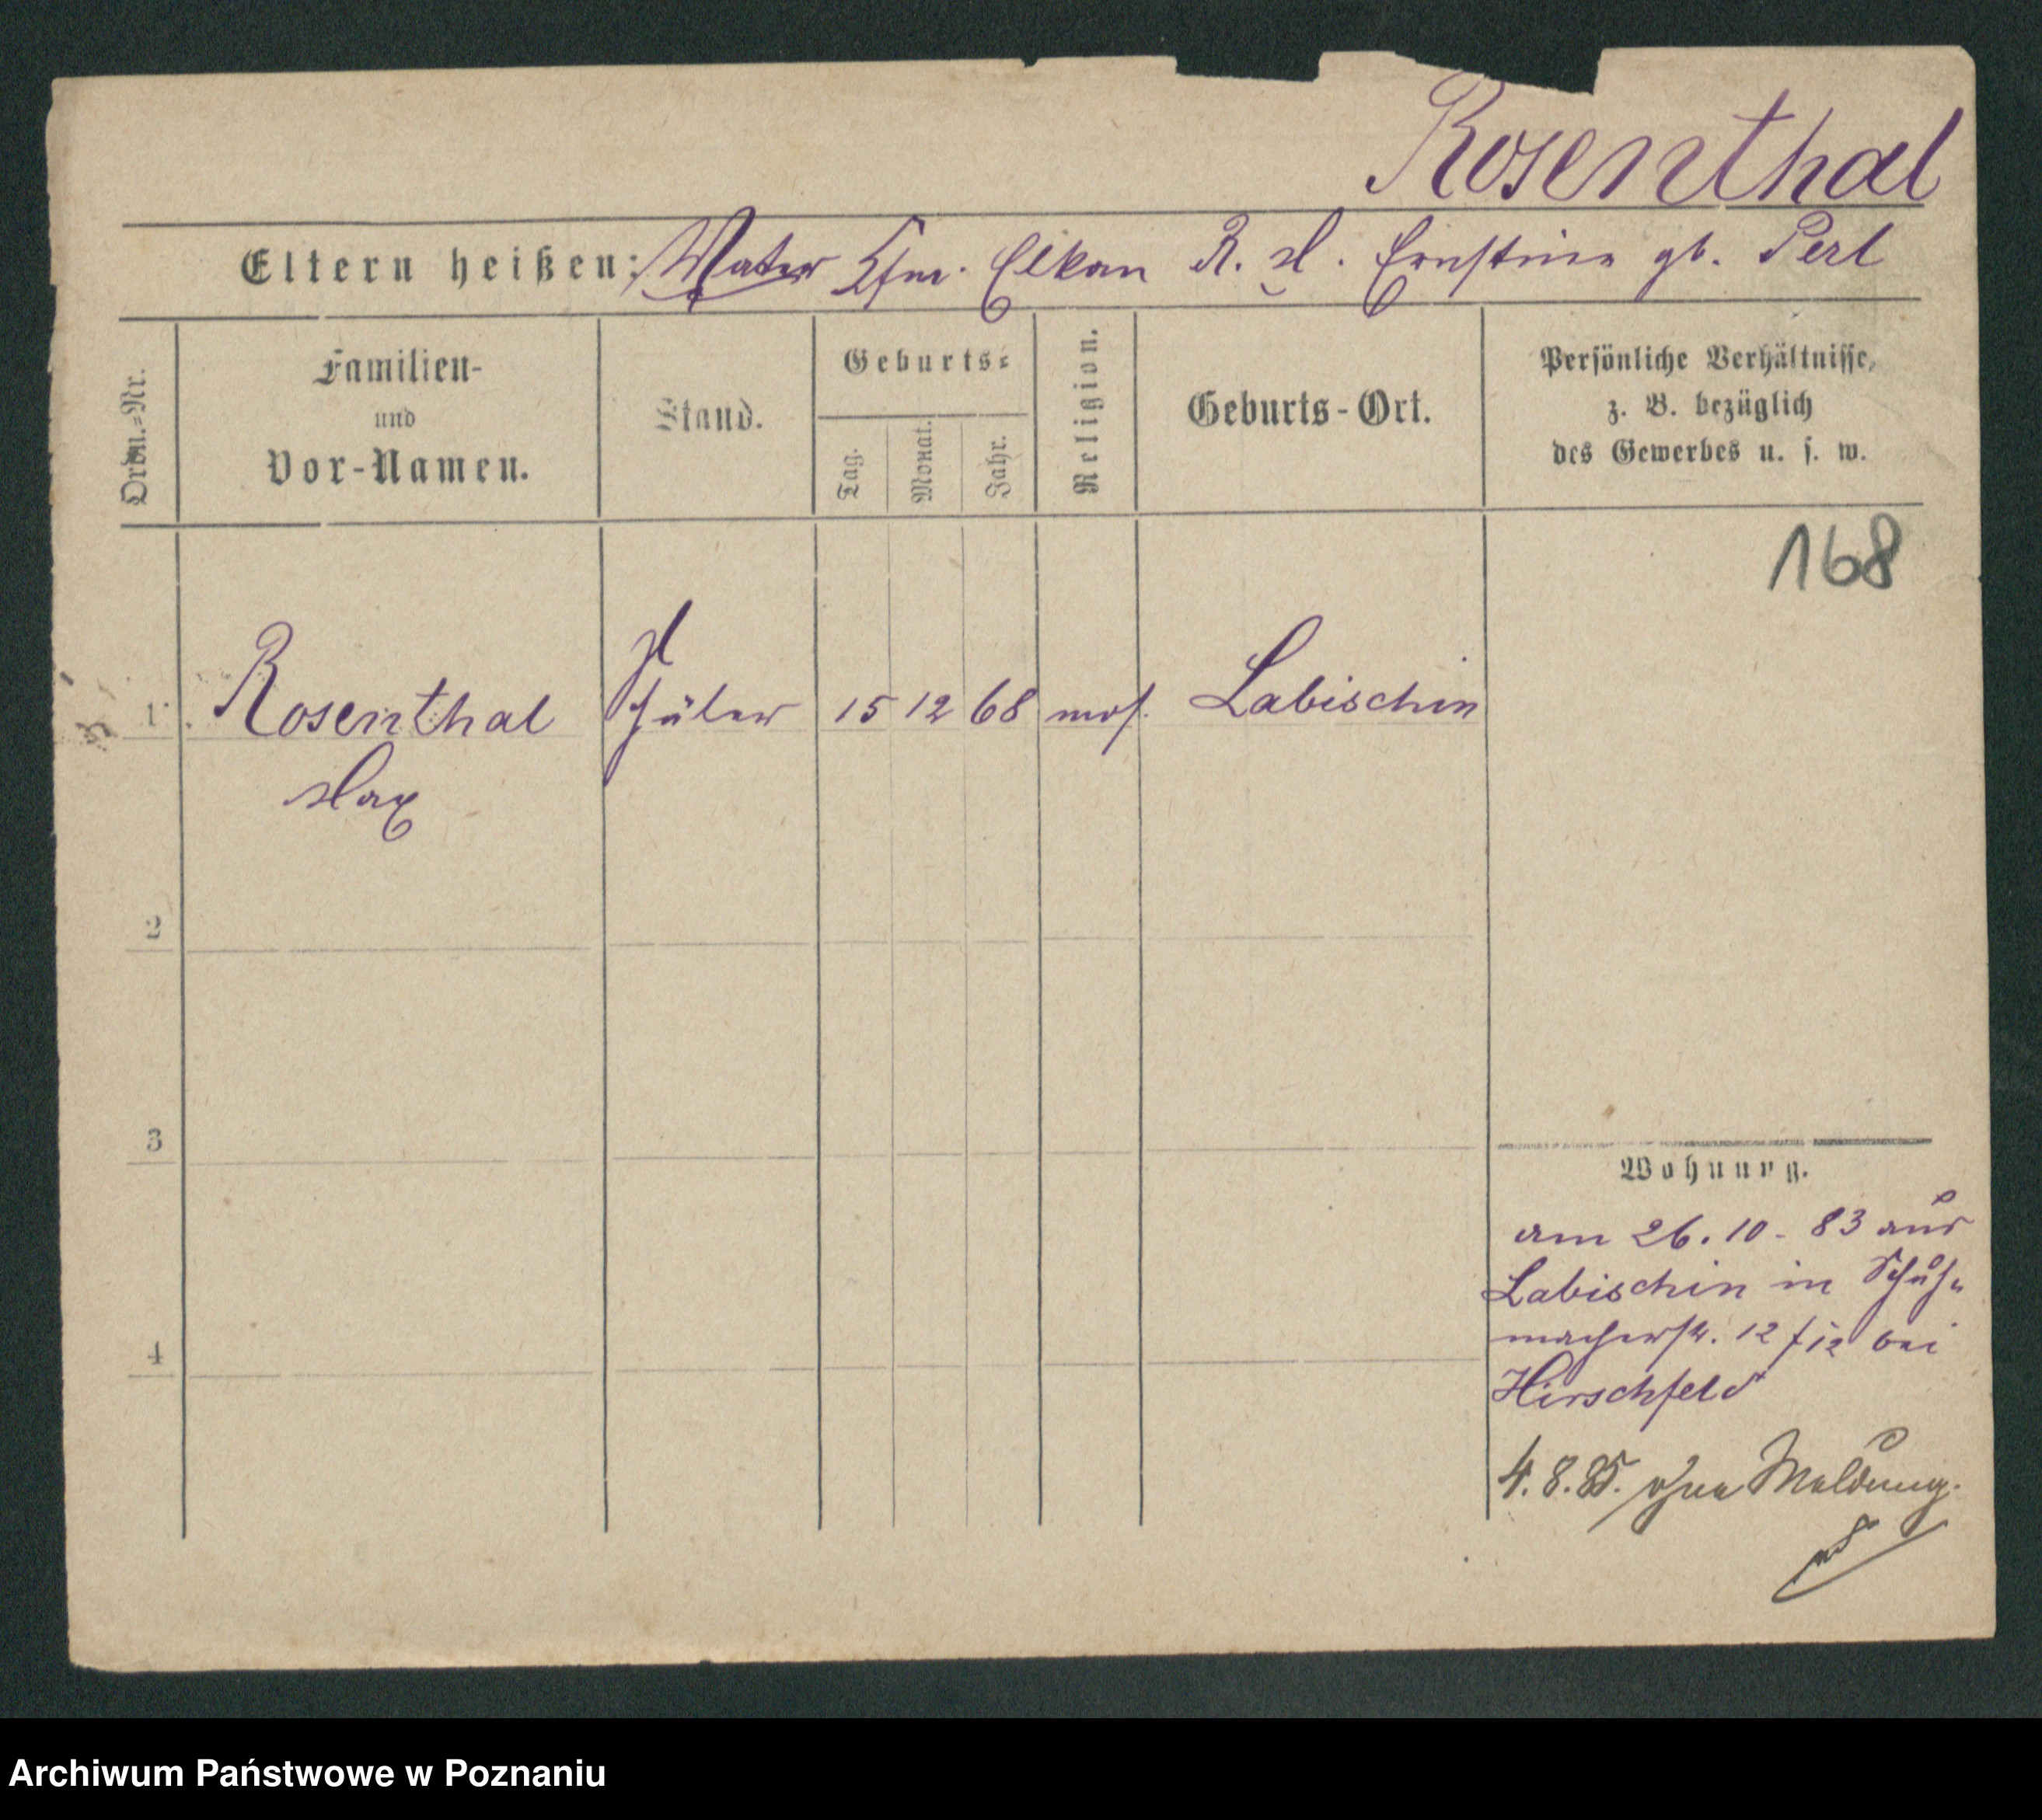 Rosenthal
Eltern heißen: Vater Kfm. Elkan R. M. Ernstine gb. Perl
Ordn.=Nr.
Familien-
und
Vor-Namen.
Stand.
Geburts=
Tag.
Monat.
Jahr.
Religion.
Geburts-Ort.
Persönliche Verhältnisse,
z. B. bezüglich
des Gewerbes u. s. w.
168
1 Rosenthal Schüler 15 12 68 mos. Labischin
Max
2
3
Wohnung.
am 26.10-83 aus
Labischin in Schuh=
macherstr. 12 bei
4
Hirschfeld
4.8.85. ohne Meldung.
Archiwum Państwowe w Poznaniu